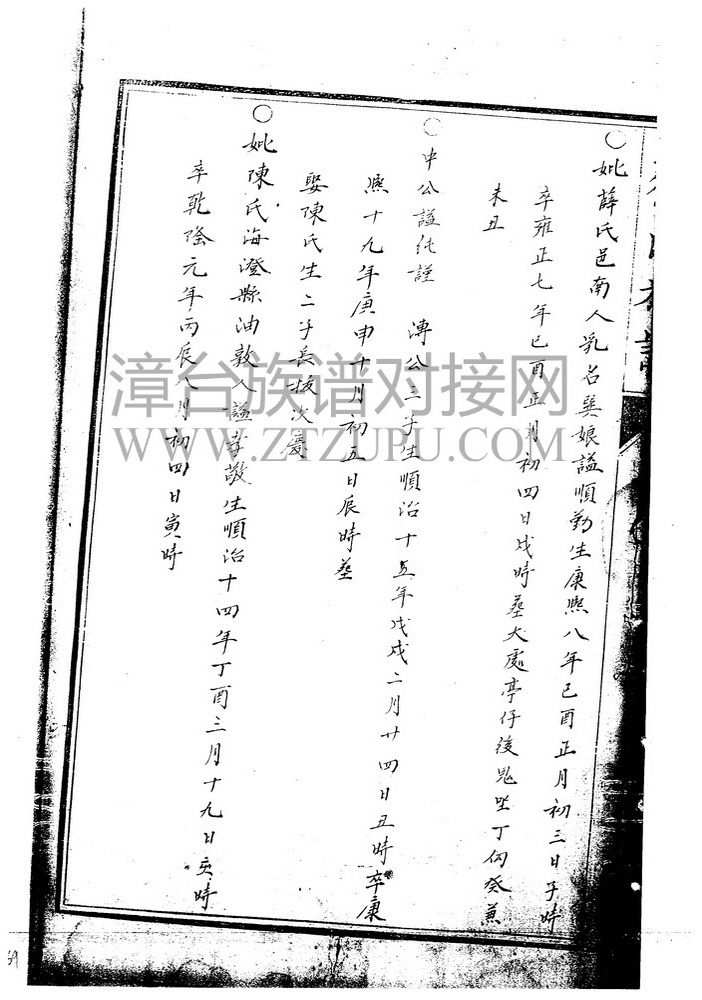 ○妣薛氏邑南人乳名巽娘謚順勤生康熙八年己酉正月初三日子時
卒雍正七年己酉正月初四日戌時葬大處亭仔後鬼坐丁向癸兼
未丑
○申公謚純謹 溥公三子生順治十五年戊戌二月廿四日丑時卒康
熙十九年庚申十月初五日辰時葬
娶陳氏生二子長拔次慶
○妣陳氏海澄縣油敦人謚孝敬生順治十四年丁酉三月十九日亥時
卒乾隆元年丙辰八月初四日寅時
漳台族谱对接网
WWW.ZTZUPU.COM